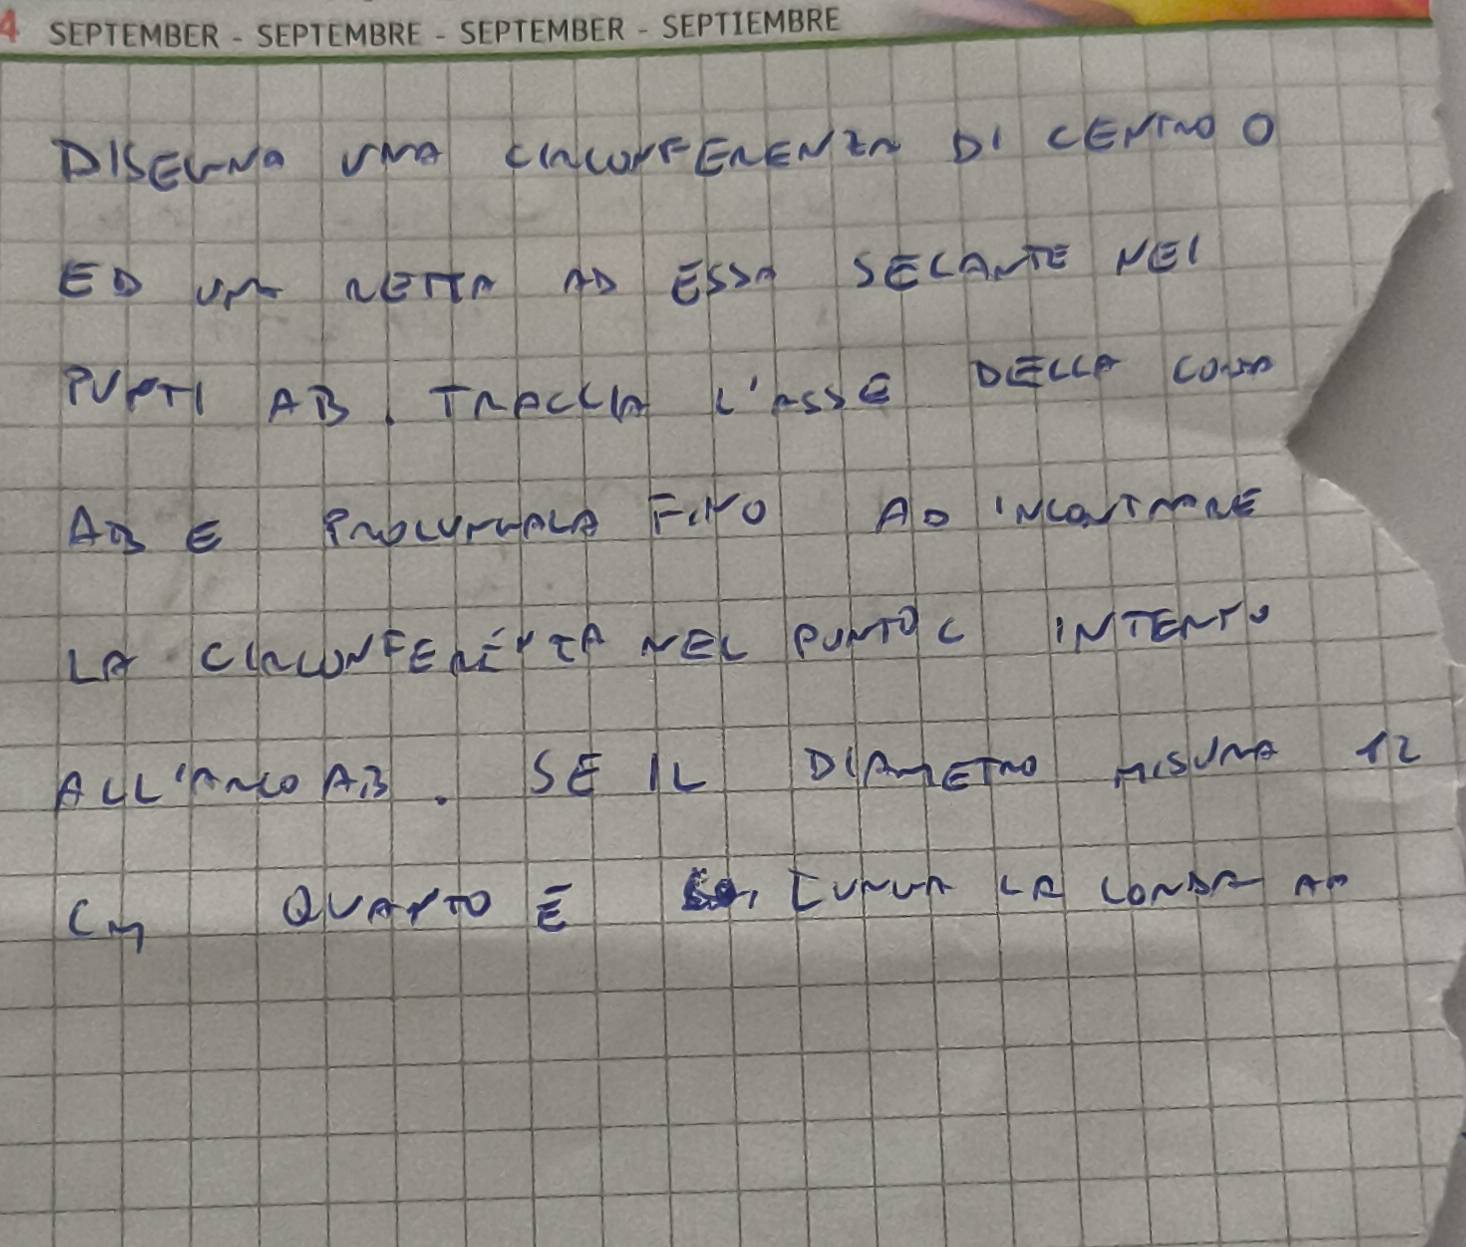 4 SEPTEMBER - SEPTEMBRE - SEPTEMBER - SEPTIEMBRE
DISEGNA UNA CIRCONFERENZA DI CENTRO O
ED UNA RETTA AD ESSA SECANTE NEI
PUNTI AB. TRACCIA L'ASSE DELLA CORDA
AB E PROLUNGALA FINO AD INCONTRARE
LA CIRCONFERENZA NEL PUNTO C INTERNO
ALL'ARCO AB. SE IL DIAMETRO MISURA 12
CM QUANTO È LUNGA LA CORDA AB